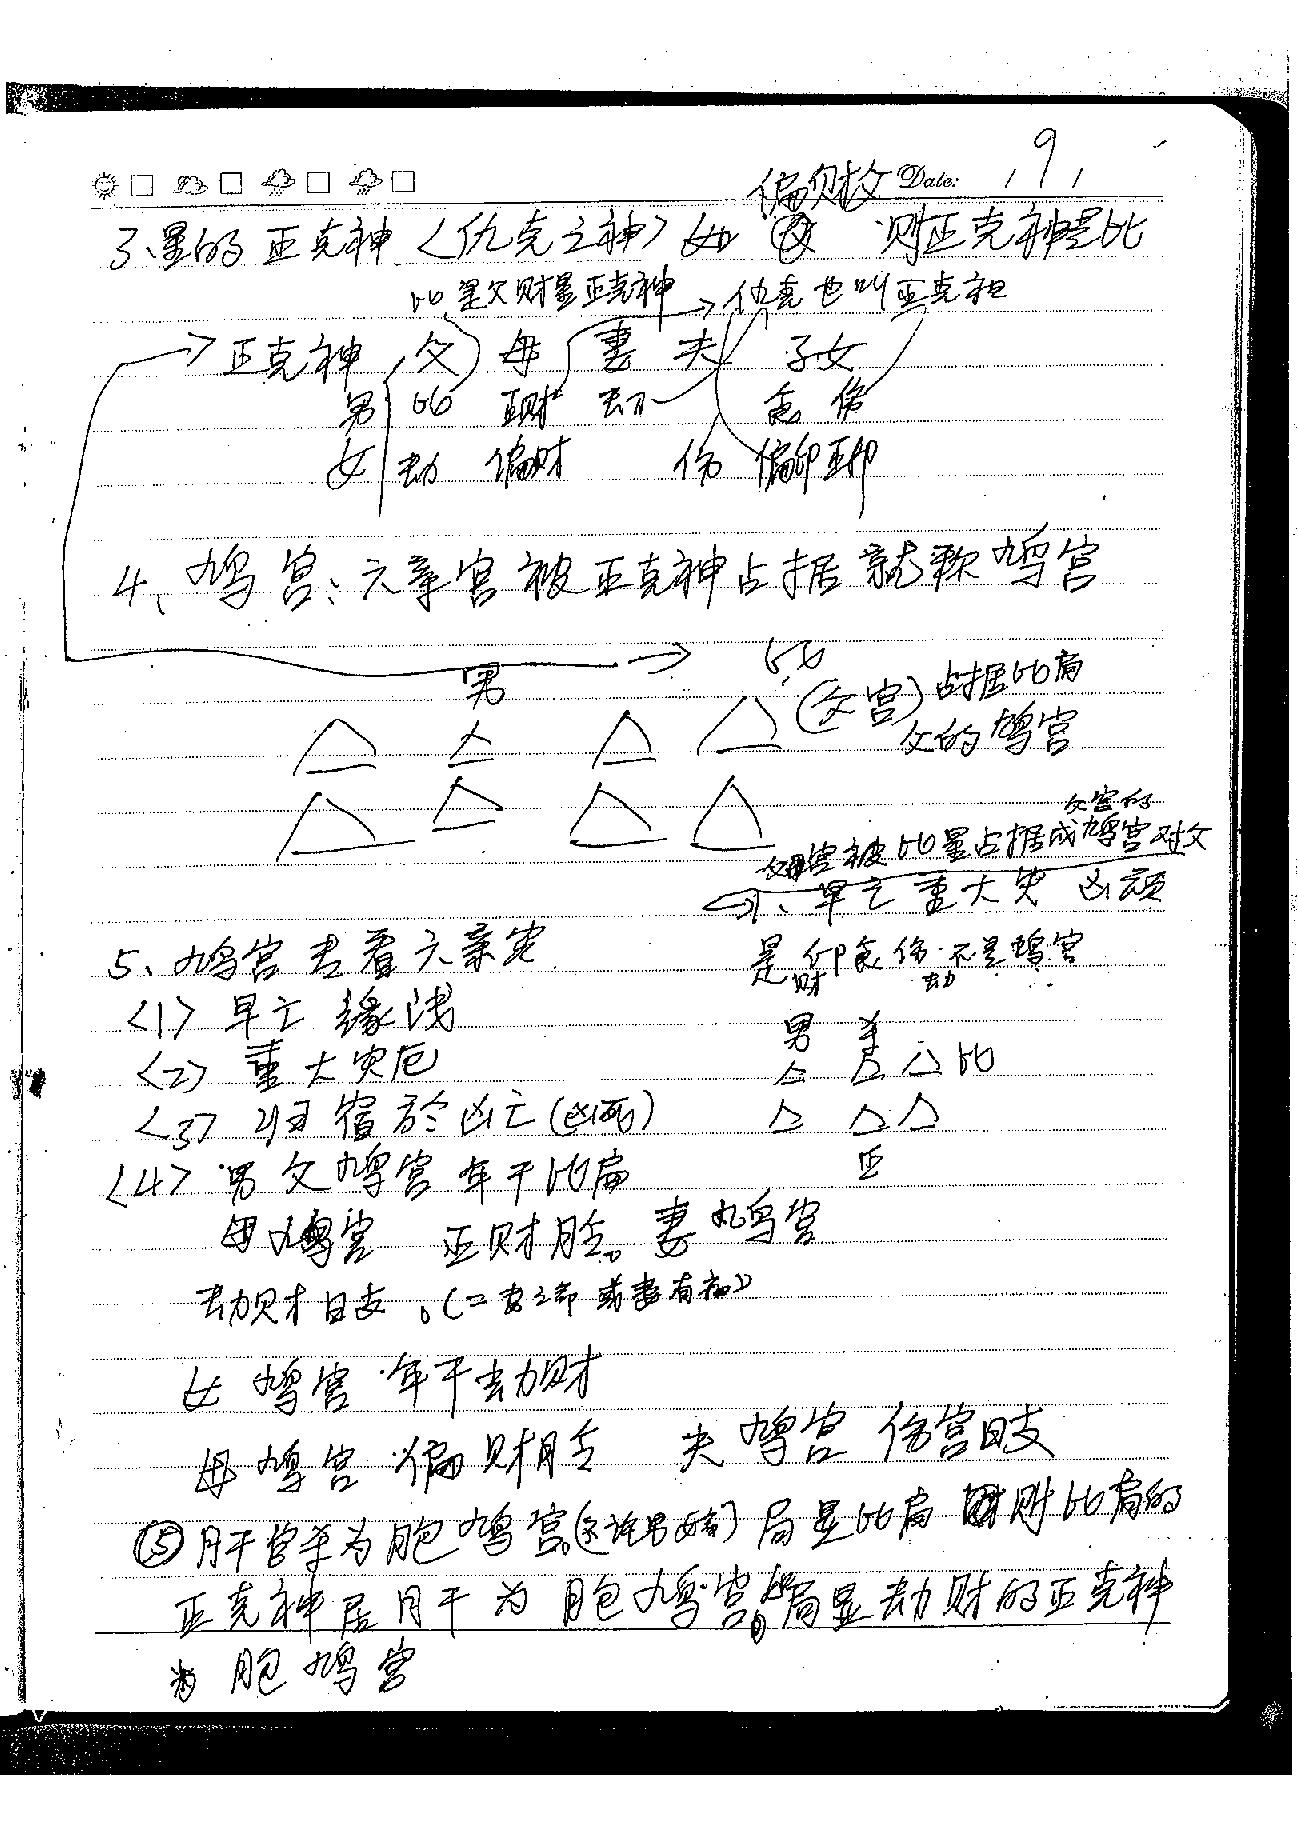 9
偏财父 Date:
3、星的正克神〈仇克之神〉如父 则正克神是比
比是欠财星正克神 → 仇克也叫正克神
正克神 父 母 妻 夫 子女
男 比 正财 劫 食 伤
女 劫 偏财 伤 偏印 正印
4、鸠宫：六亲宫被正克神占据就称鸠宫
男 比
(父宫) 占据比局
父的鸠宫
父宫的
宫被比星占据成鸠宫对父
1、早亡重大灾 凶顽
5、鸠宫去看六亲灾
是印食伤不是鸠宫
财 劫
〈1〉早亡 缘浅
男 杀
〈2〉重大灾厄
比
〈3〉归宿於凶亡(凶死)
正
〈4〉男父鸠宫 年干比局
母鸠宫 正财月令。妻鸠宫
劫财日支。
女 鸠宫 年干劫财
母鸠宫 偏财月令 夫鸠宫 伤宫日支
⑤月干官杀为胞鸠宫 局是比局 则比局的
正克神居月干为胞鸠宫。局是劫财的正克神
为胞鸠宫